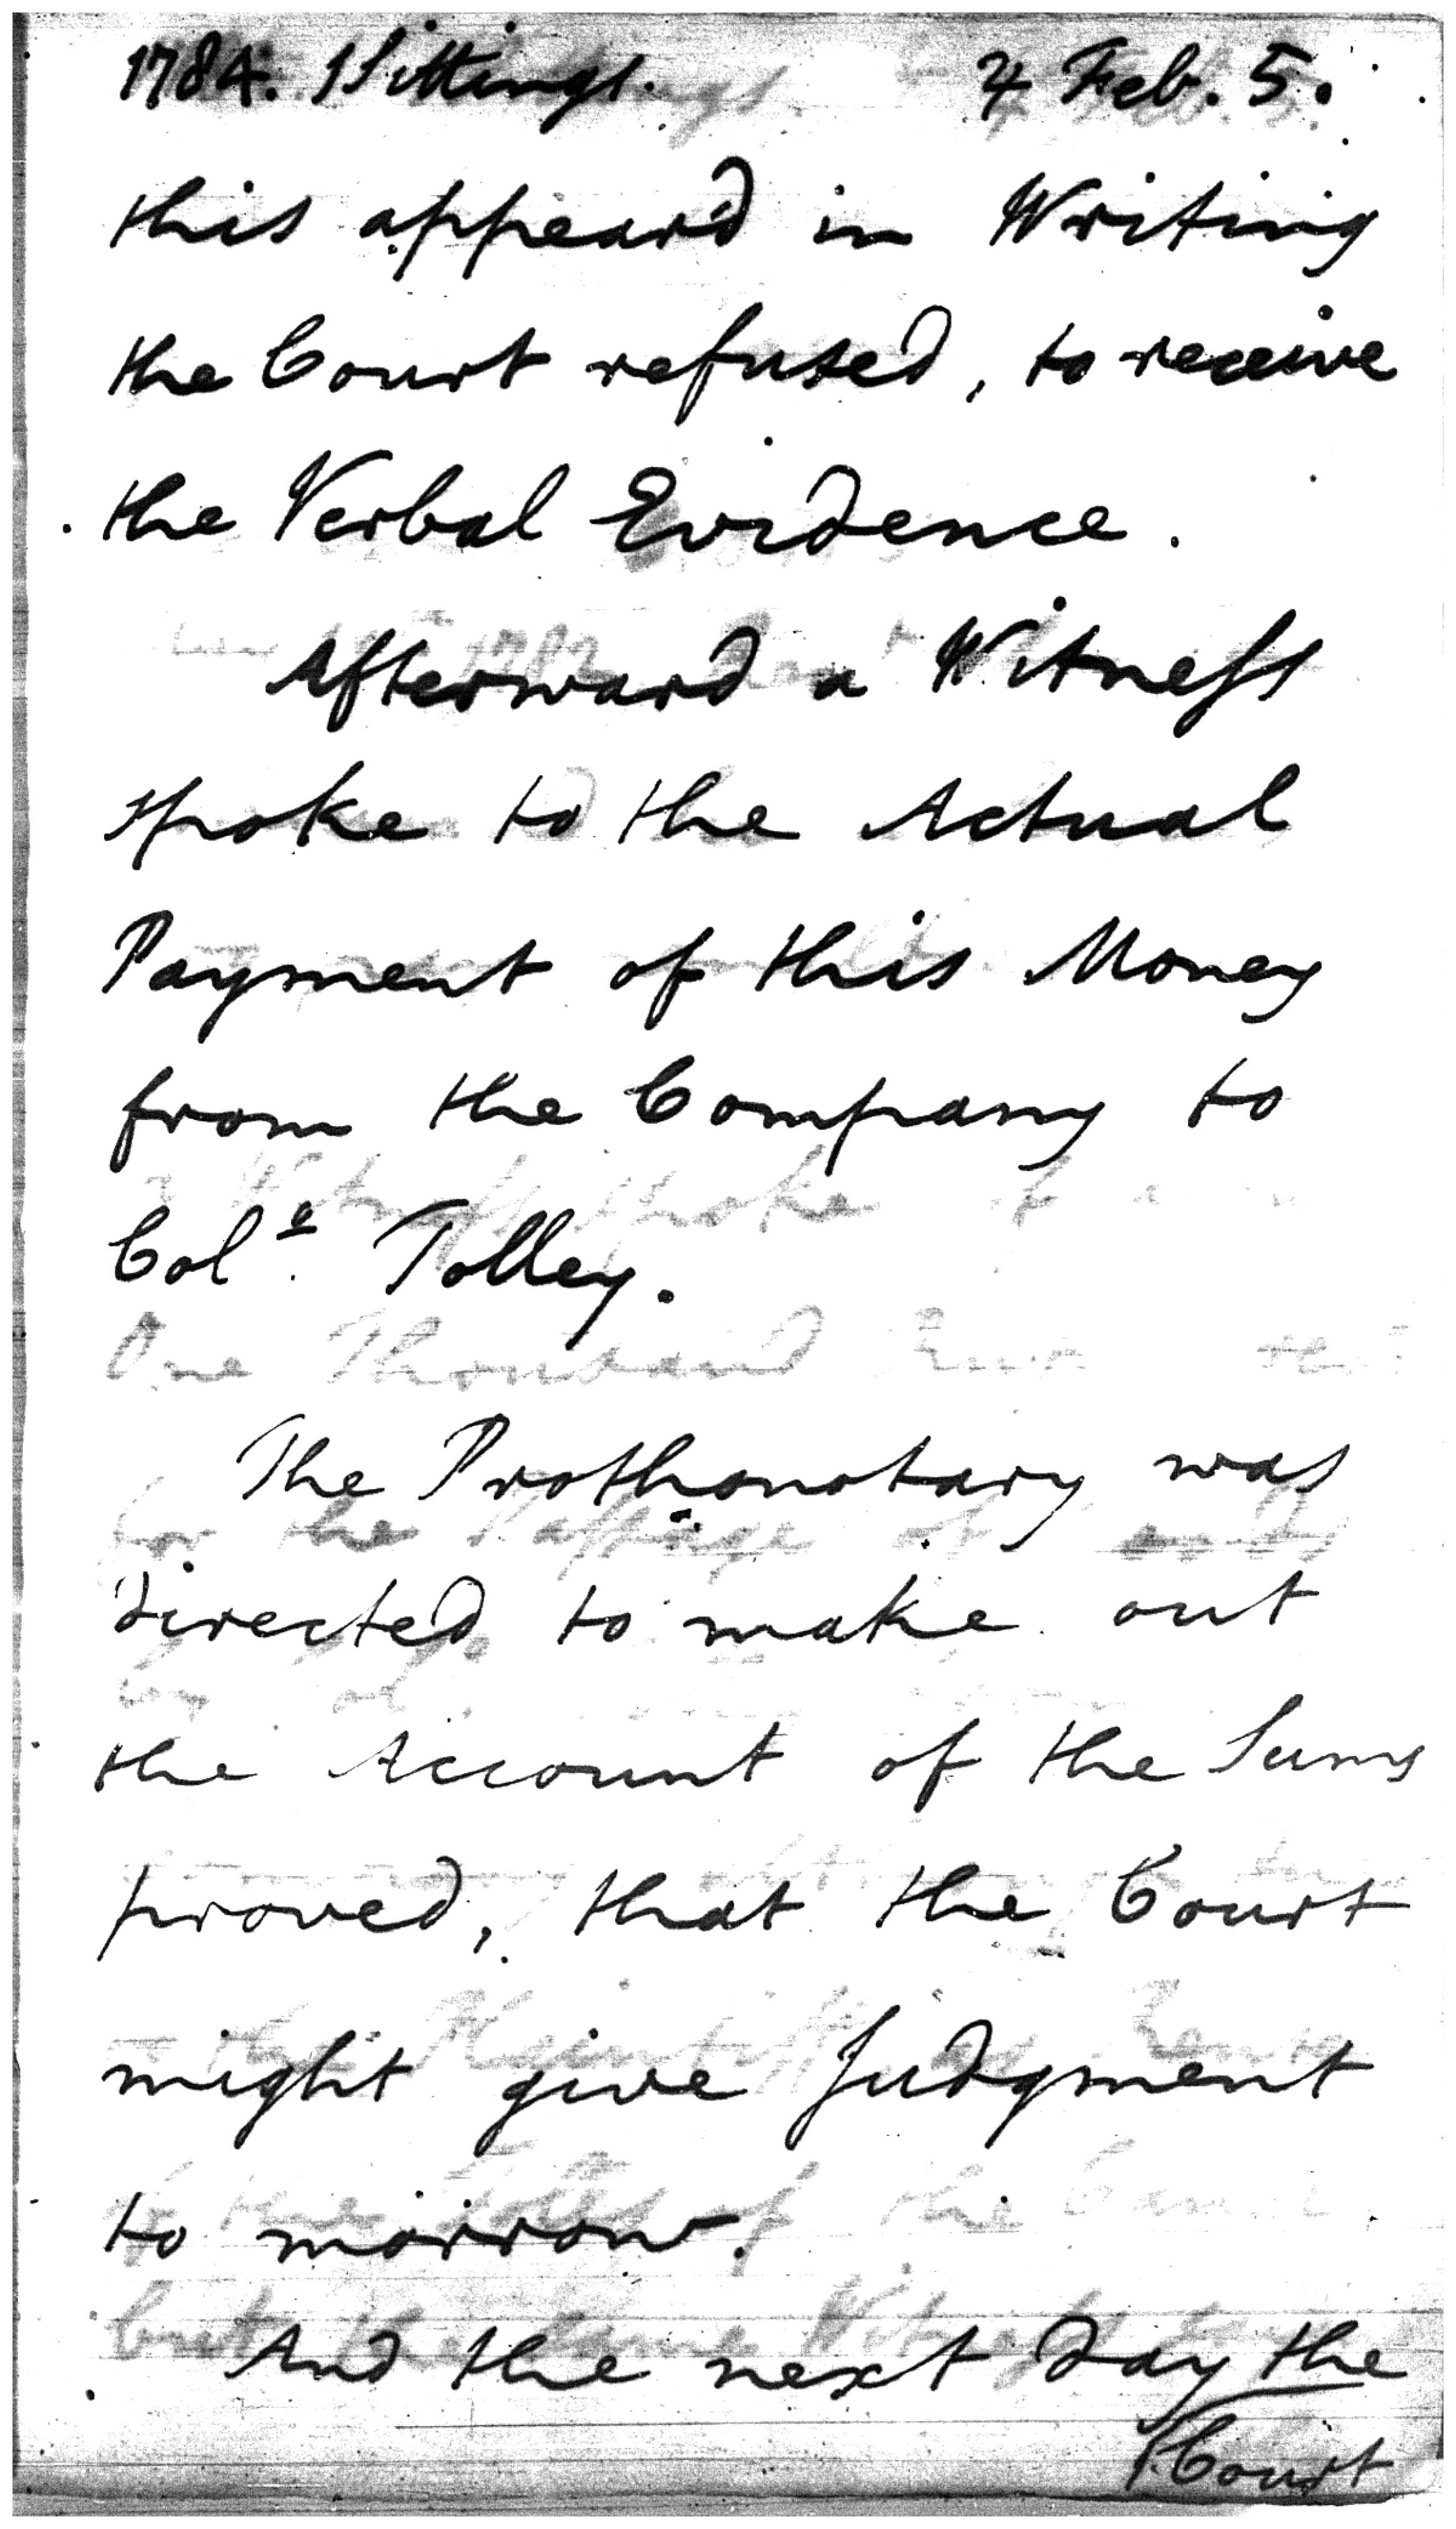 1784. Sittings. ♃ Feb. 5.
this appear'd in Writing
the Court refused, to receive
the Verbal Evidence.
Afterward a Witneſs
spoke to the Actual
Payment of this Money
from the Company to
Col.º Tolley.
The Prothonotary was
directed to make out
the Account of the Sums
proved, that the Court
might give Judgment
to morrow.
And the next day the
Court